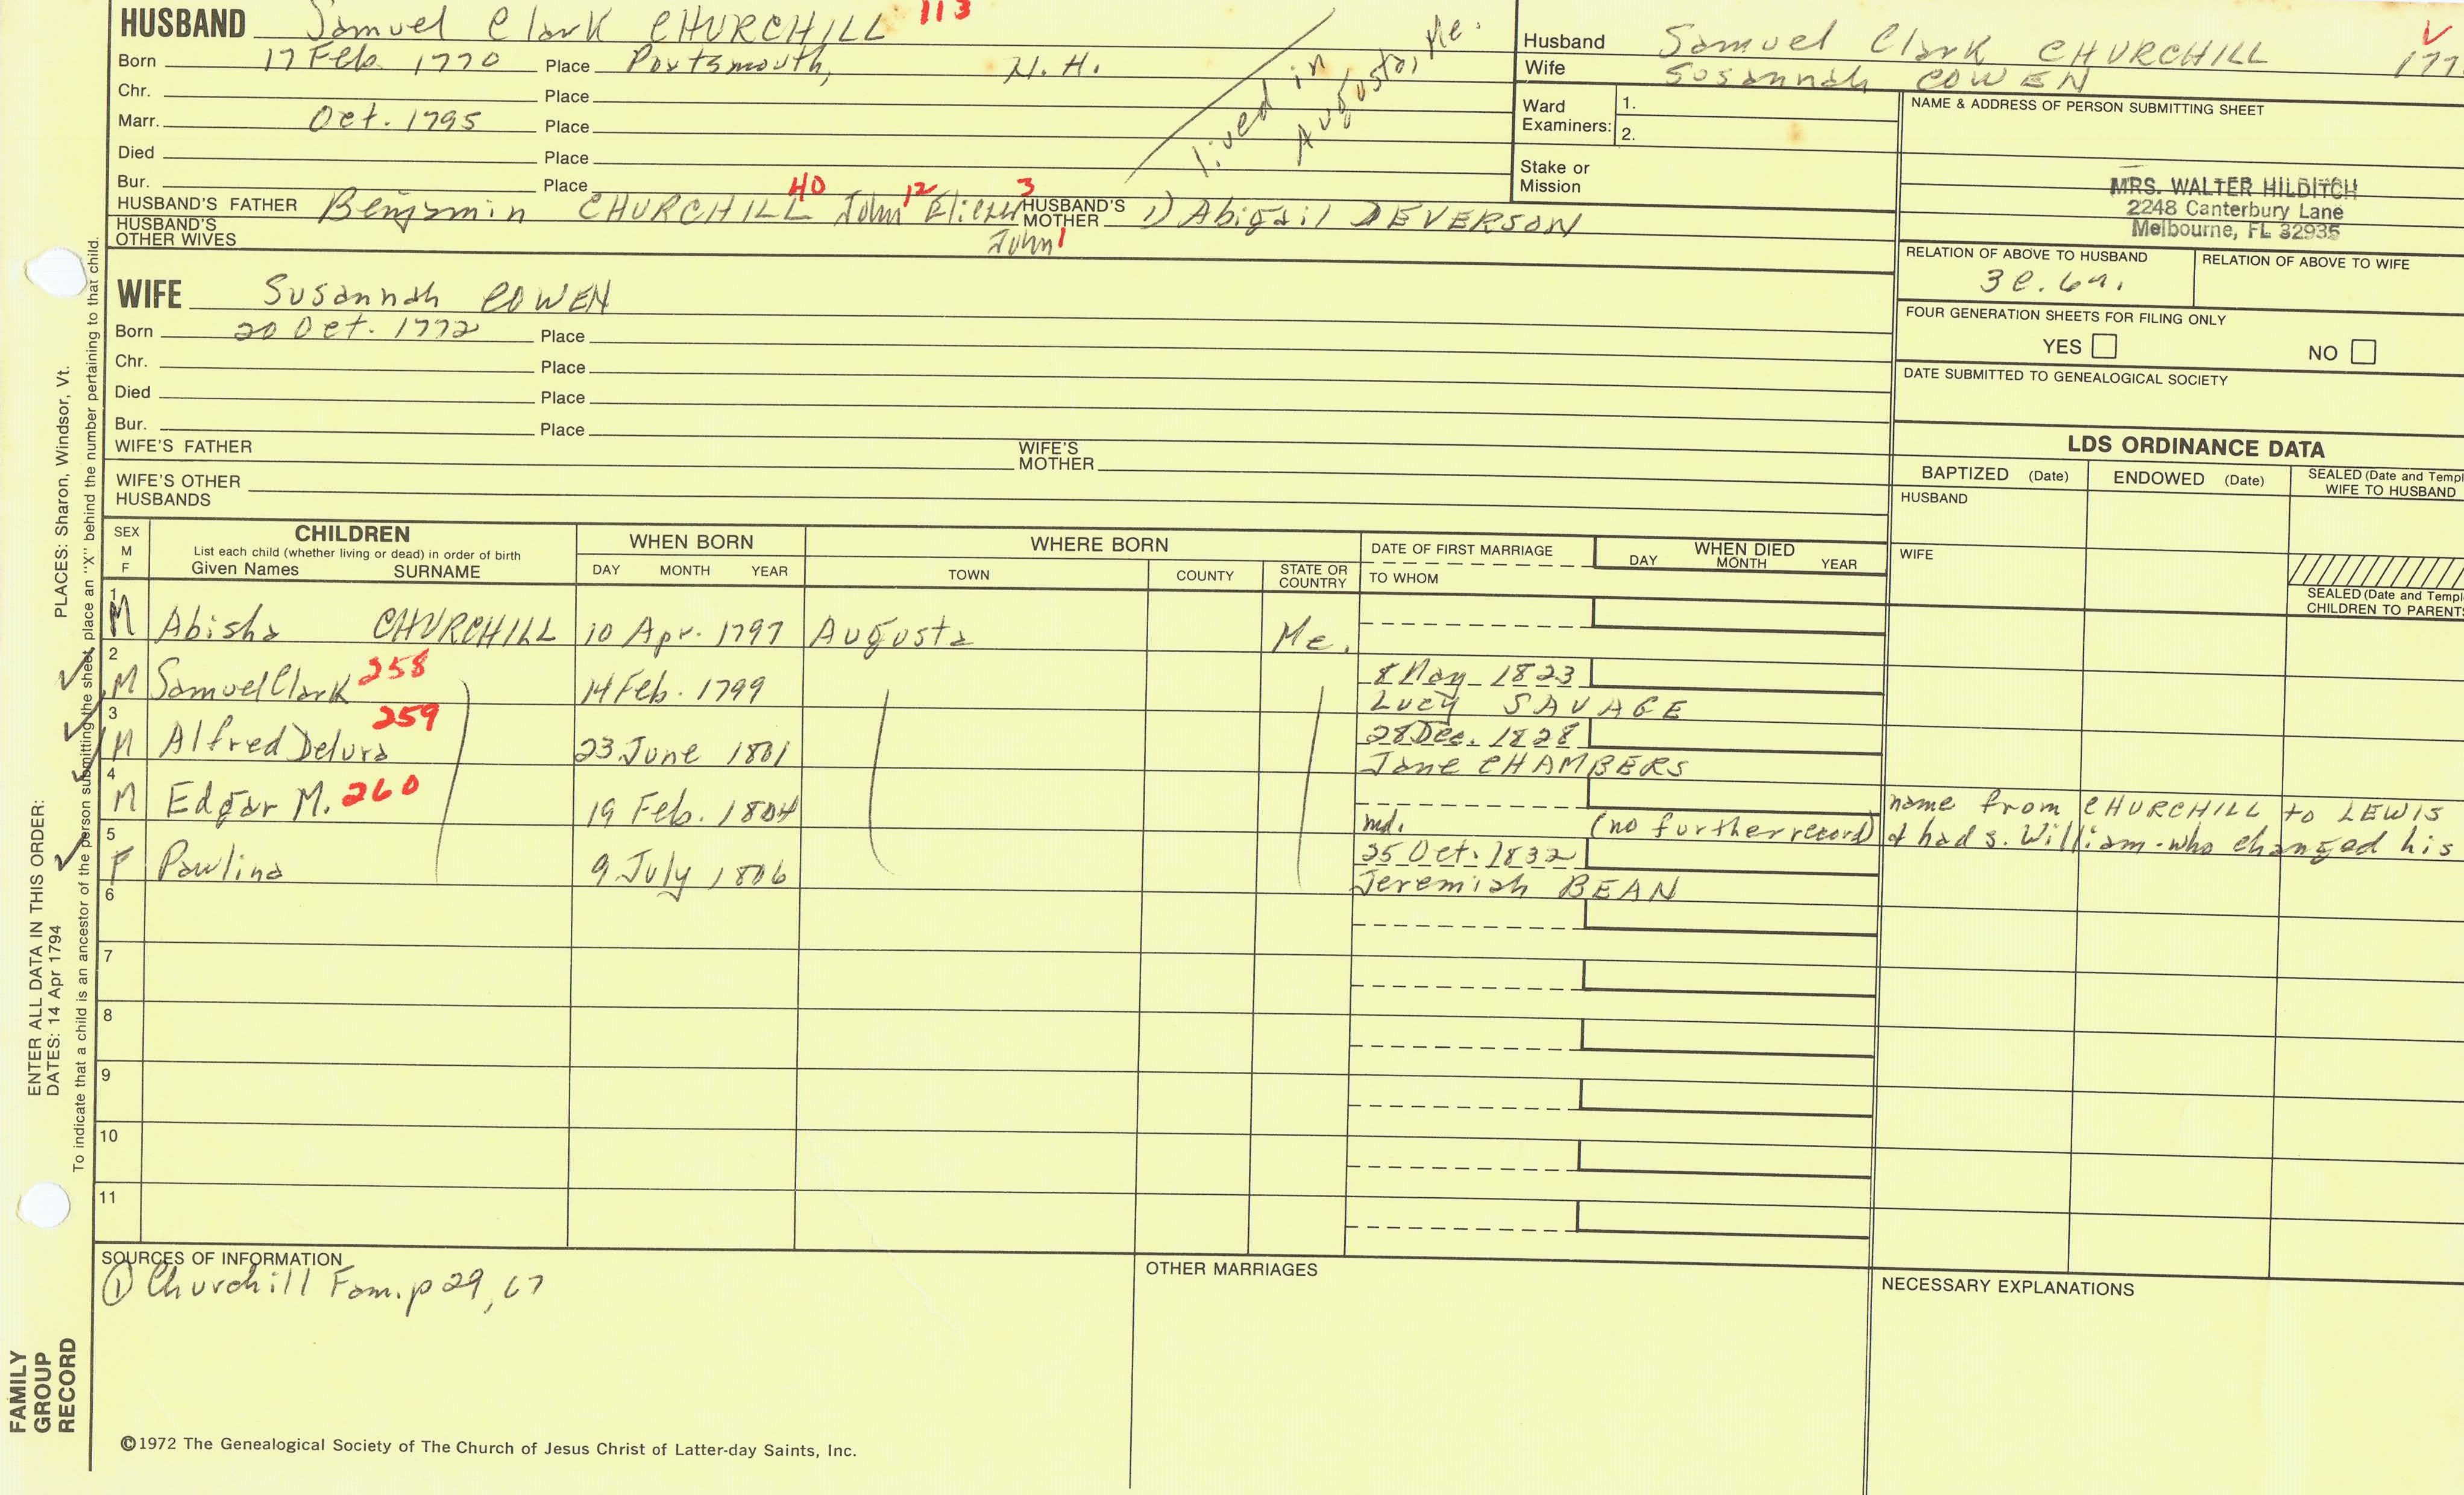 HUSBAND Samuel Clark CHURCHILL 113
Born 17 Feb. 1770 Place Portsmouth, N.H.
Chr. Place
Marr. Oct. 1795 Place
Died Place
Bur. Place
lived in
Augusta, Me.
HUSBAND'S FATHER Benjamin CHURCHILL 40 John 12 Eliezer 3 HUSBAND'S MOTHER 1) Abigail DEVERSON
John 1
HUSBAND'S OTHER WIVES
WIFE Susannah COWEN
Born 20 Oct. 1772 Place
Chr. Place
Died Place
Bur. Place
WIFE'S FATHER WIFE'S MOTHER
WIFE'S OTHER HUSBANDS
Husband Samuel Clark CHURCHILL 177
Wife Susannah COWEN
Ward Examiners: 1.
2.
Stake or Mission
NAME & ADDRESS OF PERSON SUBMITTING SHEET
MRS. WALTER HILDITCH
2248 Canterbury Lane
Melbourne, FL 32935
RELATION OF ABOVE TO HUSBAND RELATION OF ABOVE TO WIFE
3c. 6q.
FOUR GENERATION SHEETS FOR FILING ONLY
YES NO
DATE SUBMITTED TO GENEALOGICAL SOCIETY
LDS ORDINANCE DATA
BAPTIZED (Date) ENDOWED (Date) SEALED (Date and Templ
WIFE TO HUSBAND
HUSBAND
WIFE
SEALED (Date and Templ
CHILDREN TO PARENTS
SEX M F CHILDREN
List each child (whether living or dead) in order of birth
Given Names SURNAME
WHEN BORN
DAY MONTH YEAR
WHERE BORN
TOWN COUNTY STATE OR COUNTRY
DATE OF FIRST MARRIAGE
TO WHOM
WHEN DIED
DAY MONTH YEAR
1 M Abisha CHURCHILL 10 Apr. 1797 Augusta Me.
2 M Samuel Clark 258 14 Feb. 1799 8 May 1823
Lucy SAVAGE
3 M Alfred Delura 259 23 June 1801 28 Dec. 1828
Jane CHAMBERS
4 M Edgar M. 260 19 Feb. 1804 name from CHURCHILL to LEWIS
md. (no further record) & had s. William - who changed his
5 F Pawlina 9 July 1806 25 Oct. 1832
Jeremiah BEAN
6
7
8
9
10
11
SOURCES OF INFORMATION
① Churchill Fam. p 29, 67
OTHER MARRIAGES
NECESSARY EXPLANATIONS
©1972 The Genealogical Society of The Church of Jesus Christ of Latter-day Saints, Inc.
FAMILY
GROUP
RECORD
ENTER ALL DATA IN THIS ORDER:
DATES: 14 Apr 1794
PLACES: Sharon, Windsor, Vt.
To indicate that a child is an ancestor of the person submitting the sheet, place an "X" behind the number pertaining to that child.